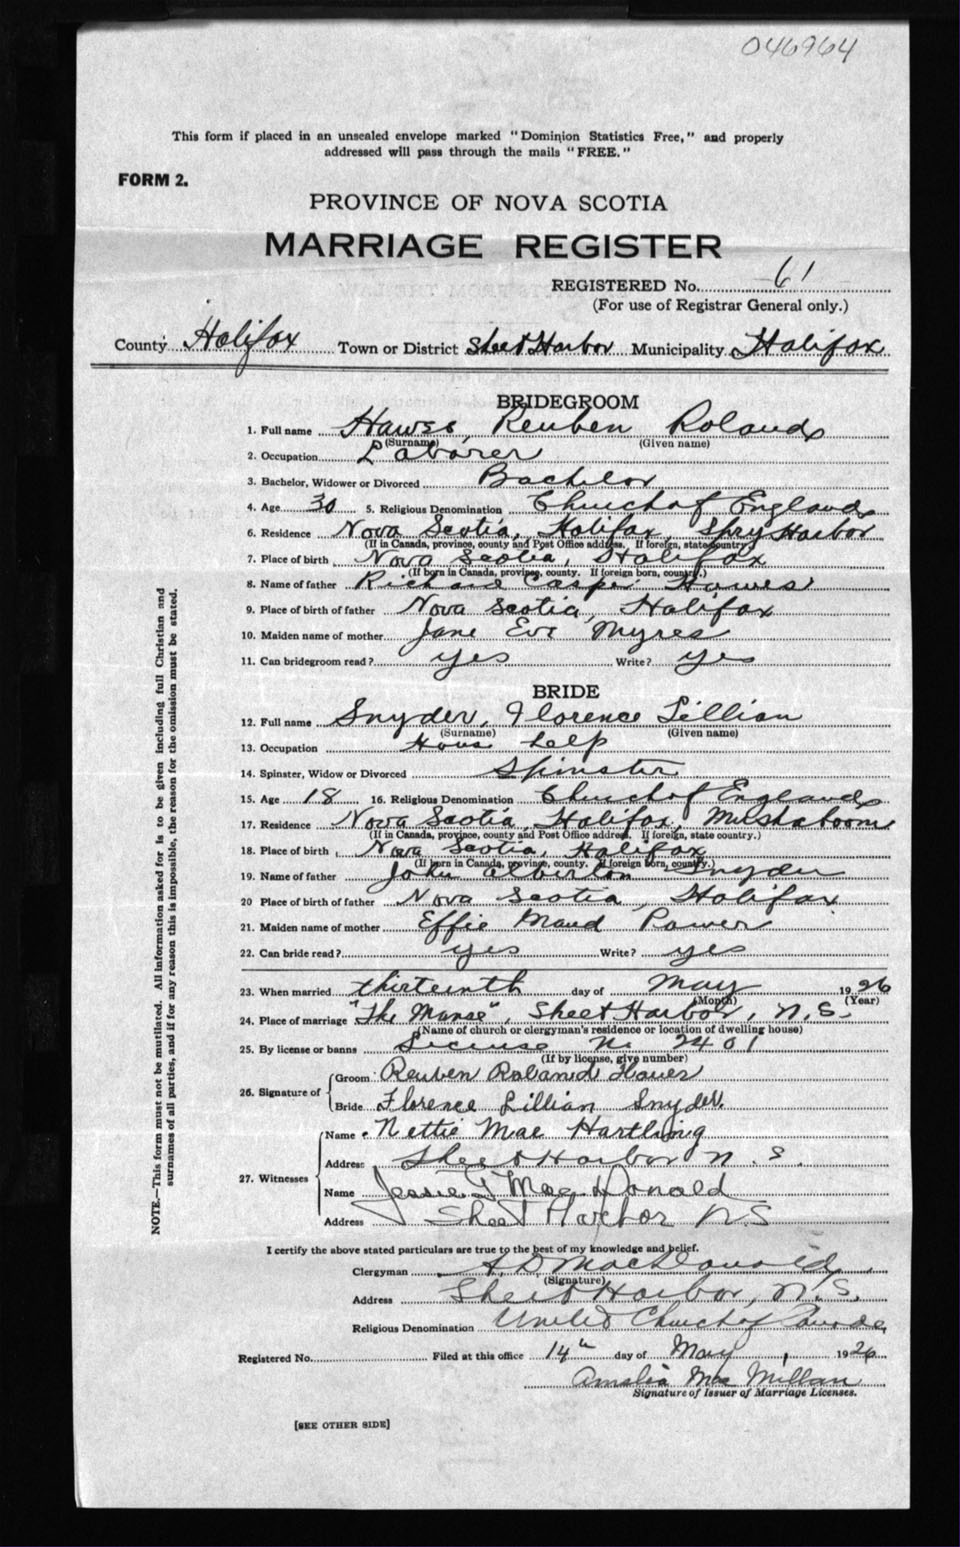 046964
This form if placed in an unsealed envelope marked "Dominion Statistics Free," and properly
addressed will pass through the mails "FREE."
FORM 2.
PROVINCE OF NOVA SCOTIA
MARRIAGE REGISTER
REGISTERED No. 61
(For use of Registrar General only.)
County Halifax Town or District Sheet Harbor Municipality Halifax
BRIDEGROOM
1. Full name Hawes, Reuben Roland
(Surname) (Given name)
2. Occupation Laborer
3. Bachelor, Widower or Divorced Bachelor
4. Age 30 5. Religious Denomination Church of England
6. Residence Nova Scotia, Halifax, Spry Harbor
(If in Canada, province, county and Post Office address. If foreign, state country.)
7. Place of birth Nova Scotia, Halifax
(If born in Canada, province, county. If foreign born, country.)
8. Name of father Richard Casper Hawes
9. Place of birth of father Nova Scotia, Halifax
10. Maiden name of mother Jane Eva Myres
11. Can bridegroom read? yes Write? yes
BRIDE
12. Full name Snyder, Florence Lillian
(Surname) (Given name)
13. Occupation House help
14. Spinster, Widow or Divorced Spinster
15. Age 18 16. Religious Denomination Church of England
17. Residence Nova Scotia, Halifax, Mushaboom
(If in Canada, province, county and Post Office address. If foreign, state country.)
18. Place of birth Nova Scotia, Halifax
(If born in Canada, province, county. If foreign born, country.)
19. Name of father John Alberton Snyder
20 Place of birth of father Nova Scotia, Halifax
21. Maiden name of mother Effie Maud Power
22. Can bride read? yes Write? yes
23. When married thirteenth day of May 1926
(Month) (Year)
24. Place of marriage "The Manse", Sheet Harbor, N.S.
(Name of church or clergyman's residence or location of dwelling house)
25. By license or banns License No 2401
(If by license, give number)
26. Signature of
Groom Reuben Roland Hawes
Bride Florence Lillian Snyder.
27. Witnesses
Name Nettie Mae Hartling
Address Sheet Harbor N.S.
Name Jessie J MacDonald
Address Sheet Harbor NS
I certify the above stated particulars are true to the best of my knowledge and belief.
Clergyman A.D. MacDonald
(Signature)
Address Sheet Harbor, N.S.
Religious Denomination United Church of Canada
Registered No. Filed at this office 14th day of May, 1926
Amelia MacMillan
Signature of Issuer of Marriage Licenses.
[SEE OTHER SIDE]
NOTE.—This form must not be mutilated. All information asked for is to be given including full Christian and
surnames of all parties, and if for any reason this is impossible, the reason for the omission must be stated.